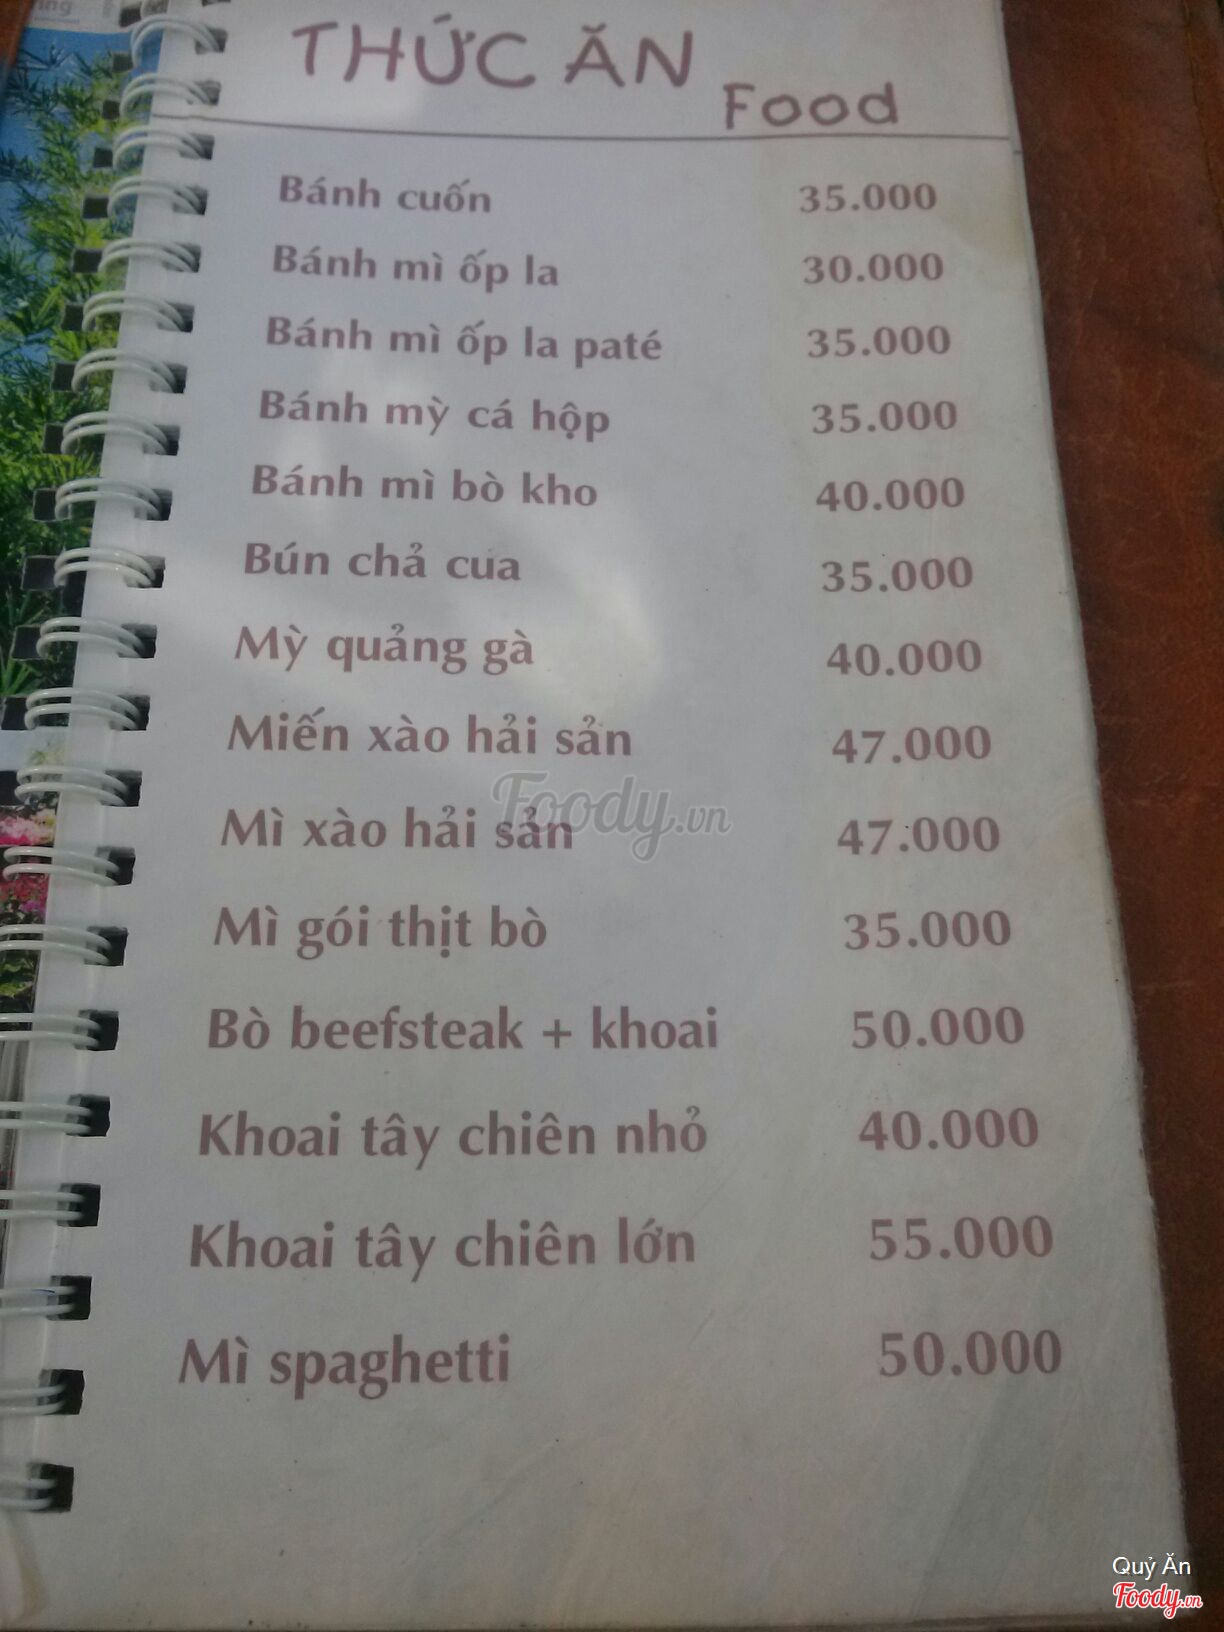 THỨC ĂN
Food
Bánh cuốn 35.000
Bánh mì ốp la 30.000
Bánh mì ốp la paté 35.000
Bánh mỳ cá hộp 35.000
Bánh mì bò kho 40.000
Bún chả cua 35.000
Mỳ quảng gà 40.000
Miến xào hải sản 47.000
Foody.vn
Mì xào hải sản 47.000
Mì gói thịt bò 35.000
Bò beefsteak + khoai 50.000
Khoai tây chiên nhỏ 40.000
Khoai tây chiên lớn 55.000
Mì spaghetti 50.000
Quỷ Ăn
Foody.vn